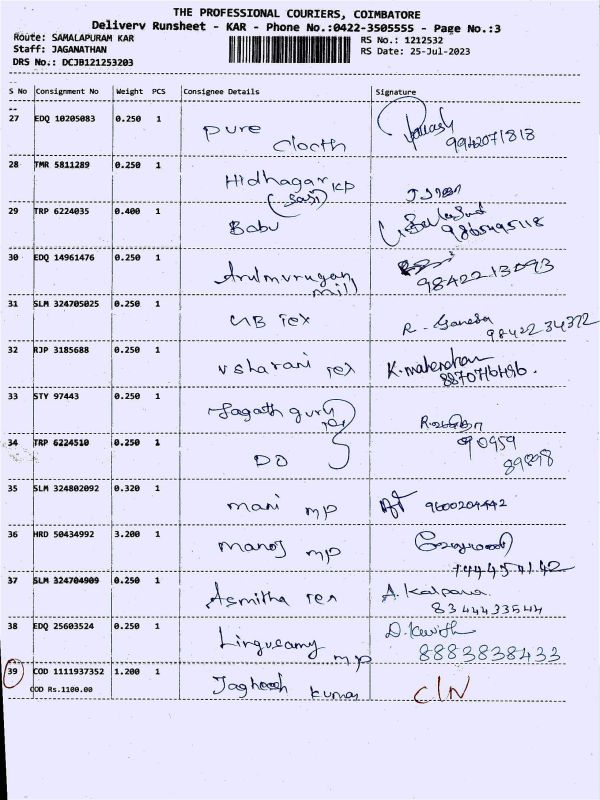 THE PROFESSIONAL COURIERS, COIMBATORE
Delivery Runsheet - KAR - Phone No.:0422-3505555 - Page No.:3
Route: SAMALAPURAM KAR
RS No.: 1212532
Staff: JAGANATHAN
RS Date: 25-Jul-2023
DRS No.: DCJB121253203
S No Consignment No Weight PCS Consignee Details Signature
27 EDQ 10205083 0.250 1 Pure Cloath
9942071818
28 TMR 5811289 0.250 1 Hidhagar KP
(Sasi)
29 TRP 6224035 0.400 1 Babu
30 EDQ 14961476 0.250 1 Arulmurugan mill
31 SLM 324705025 0.250 1 UB Tex R. Ganesa
98422 34372
32 RJP 3185688 0.250 1 Vsharani Tex K. mahendran
33 STY 97443 0.250 1 Jagath guru Tex
34 TRP 6224510 0.250 1 DO 90959
89898
35 SLM 324802092 0.320 1 mani mp 9600204442
36 HRD 50434992 3.200 1 manoj mp
37 SLM 324704909 0.250 1 Asmitha Tex A. Kalpana
8344433544
38 EDQ 25603524 0.250 1 Lingusamy mp D. Kavith
8883838433
39 COD 1111937352 1.200 1 Jagheesh kumar C/N
COD Rs.1100.00